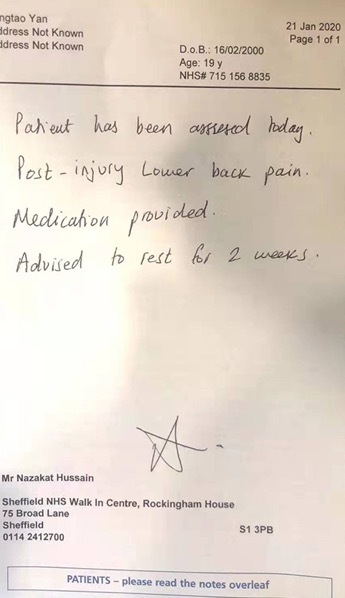 ngtao Yan
ddress Not Known
ddress Not Known
21 Jan 2020
Page 1 of 1
D.o.B.: 16/02/2000
Age: 19 y
NHS# 715 156 8835
Patient has been assessed today.
Post-injury Lower back pain.
Medication provided.
Advised to rest for 2 weeks.
Mr Nazakat Hussain
Sheffield NHS Walk In Centre, Rockingham House
75 Broad Lane
Sheffield
S1 3PB
0114 2412700
PATIENTS – please read the notes overleaf